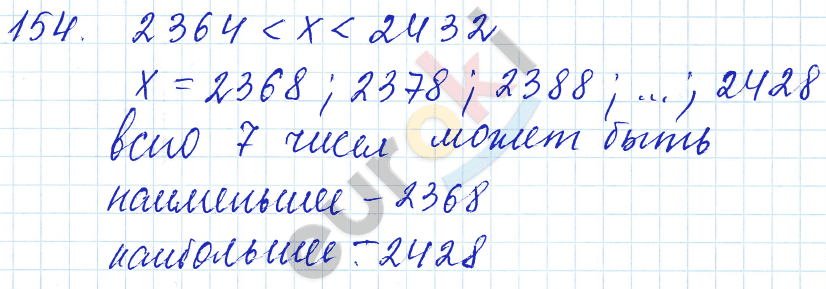 154. 2364 < x < 2432
x = 2368 ; 2378 ; 2388 ; ... ; 2428
всего 7 чисел может быть
наименьшее - 2368
наибольшее - 2428
euroki